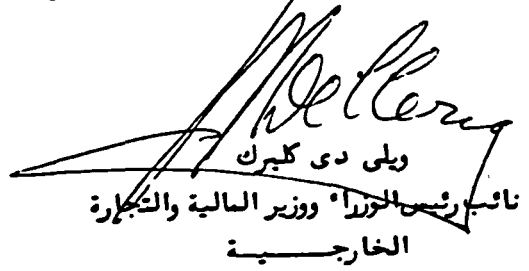 ويلى دى كليرك
نائب رئيس الوزراء ووزير المالية والتجارة
الخارجـــــية